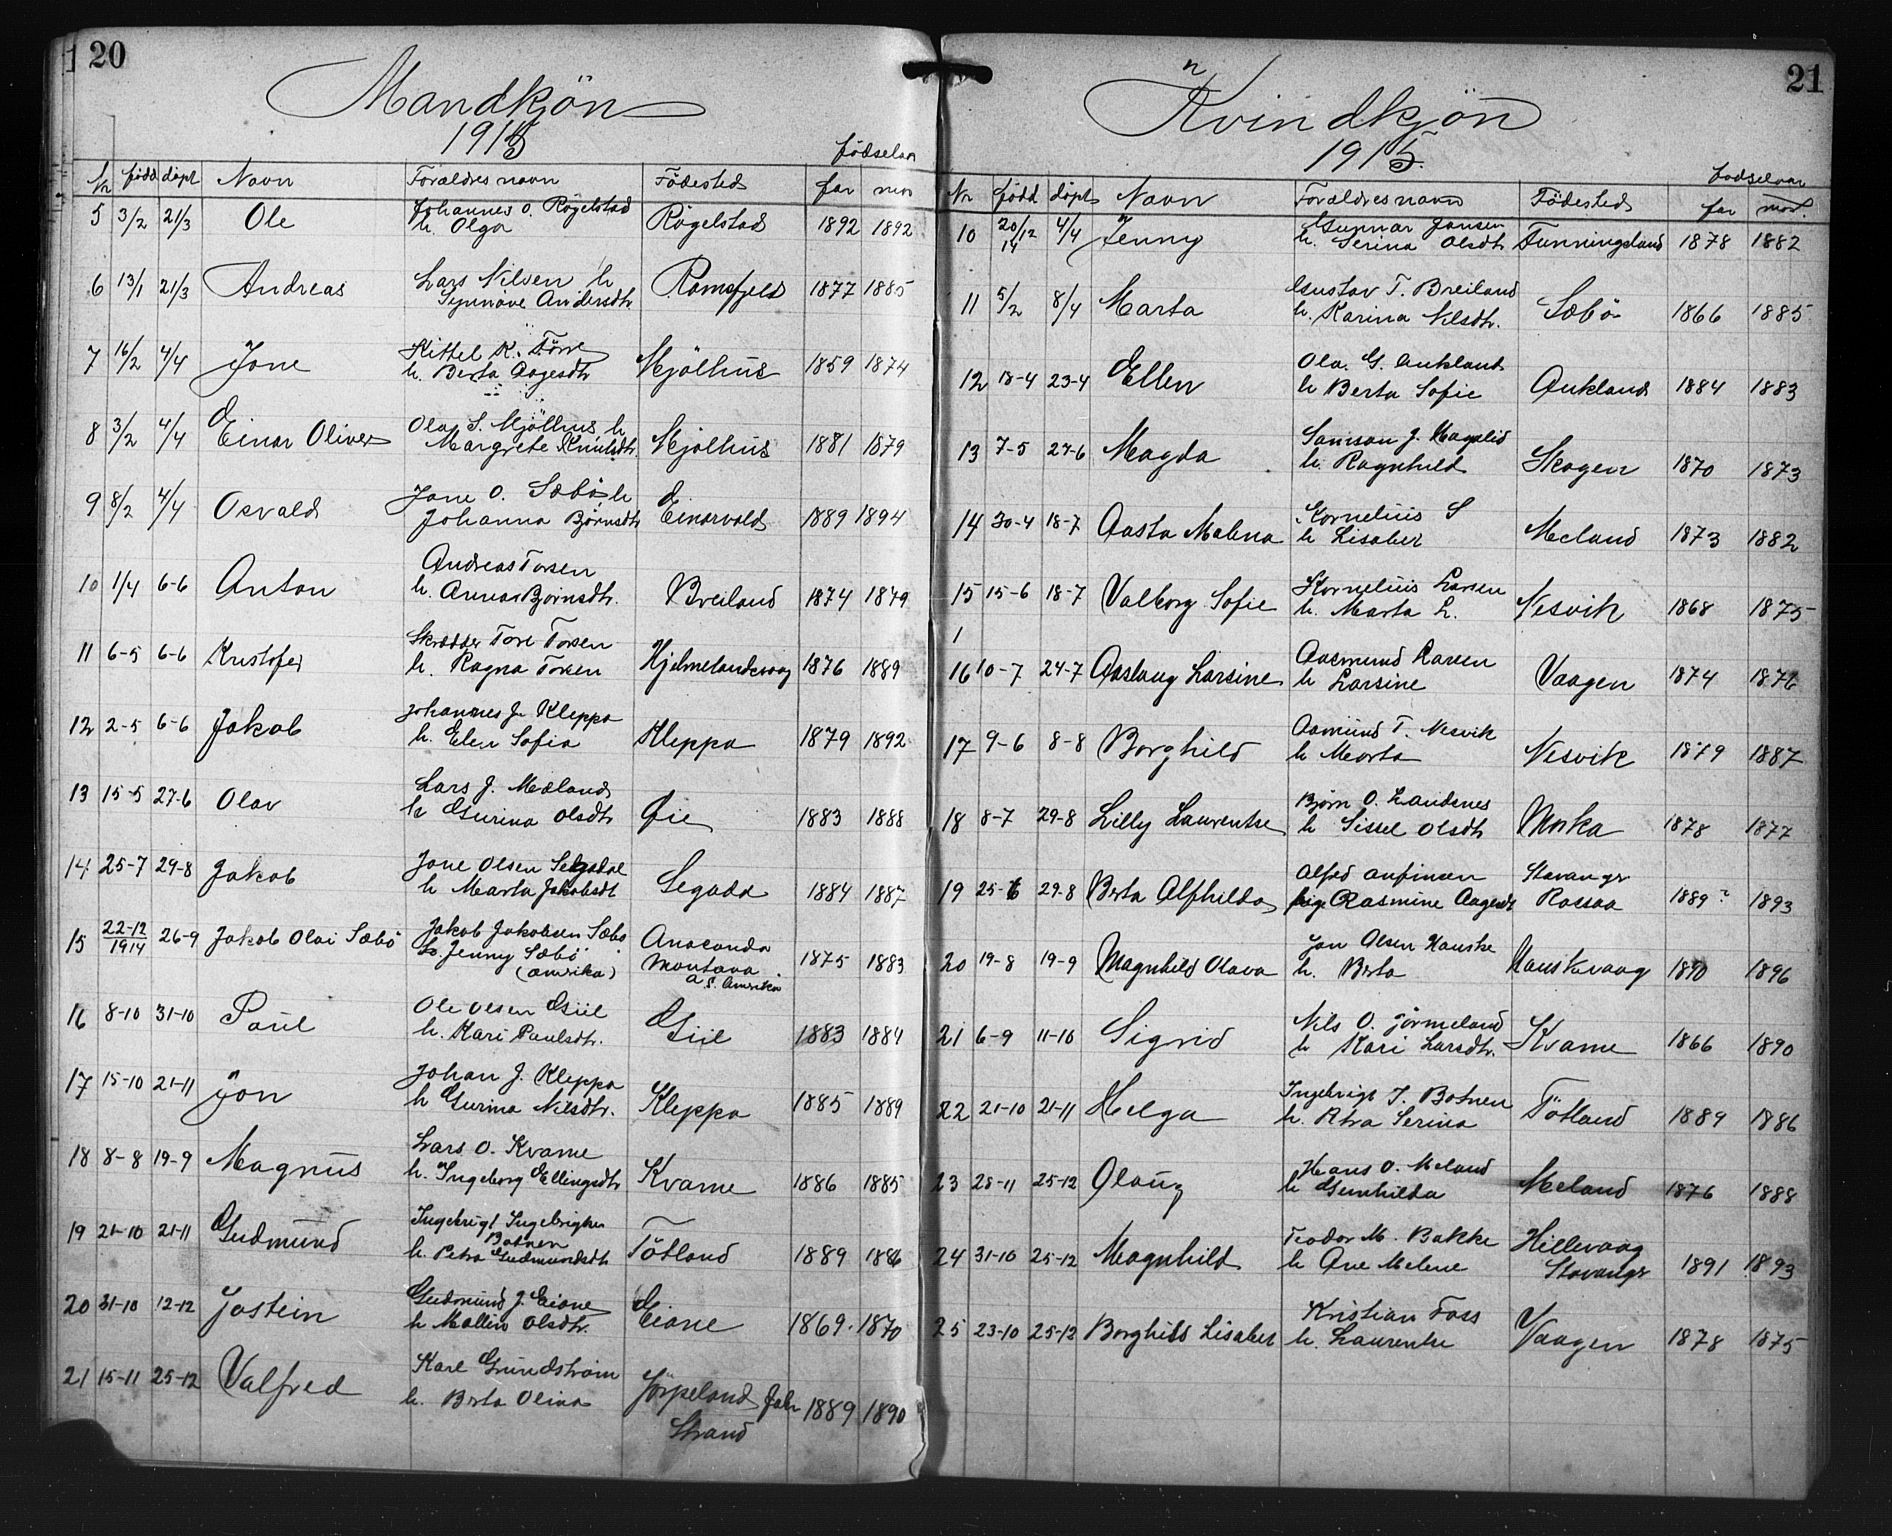 20
Mandkjön
1915
födselaar
Nr född döpt Navn Foræ​ldres navn Födested far mor
5 3/2 21/3 Ole Johannes O. Rögelstad
h. Olga Rögelstad 1892 1892
6 13/1 21/3 Andreas Lars Nilsen h.
Synnöve Andersdtr Ramsfjeld 1877 1885
7 16/2 4/4 Jone Kittel K. Törre
h. Berta Aagesdtr Mjölhus 1859 1874
8 3/2 4/4 Einar Oliver Ola S. Mjölhus h
Margrete Knutsdtr Mjölhus 1881 1879
9 8/2 4/4 Osvald Jone O. Sæbö h
Johanna Björnsdtr Einarvold 1889 1894
10 1/4 6-6 Anton Andreas Torsen
h. Anna Björnsdtr. Breiland 1874 1879
11 6-5 6-6 Kristofer Skrædder Tore Torsen
h. Ragna Torsen Hjelmelandsvaag 1876 1889
12 2-5 6-6 Jakob Johannes J. Kleppa
h. Elen Sofia Kleppa 1879 1892
13 15-5 27-6 Olav Lars J. Mæland
h Gurina Olsdtr Öie 1883 1888
14 25-7 29-8 Jakob Jone Olsen
h Marta Jakobsdt Segada 1884 1887
15 22-12/1914 26-9 Jakob Olai Sæbö Jakob Jakobsen Sæbö
h. Jenny Sæbö
(amrika) Anaconda
Montana
A. S. Amrika 1875 1883
16 8-10 31-10 Paul Ole Olsen Giil
h. Kari Paulsdtr. Giil 1883 1884
17 15-10 21-11 Jon Johan J. Kleppa
h Gurina Nilsdtr. Kleppa 1885 1889
18 8-8 19-9 Magnus Lars O. Kvame
h. Ingeborg Ellingsdtr Kvame 1886 1885
19 21-10 21-11 Gudmund Ingebrigt Ingebrigtsen
Botnen
h. Petra Gudmundsdtr Tötland 1889 1886
20 31-10 12-12 Jostein Gudmund J. Eiane
h Mallin Olsdtr. Eiane 1869. 1870
21 15-11 25-12 Valfred Karl Grundström
h. Berta Olina Jörpeland fabr
Strand 1889 1890
21
Kvindkjön
n
1915.
födselaar
Nr född döpt Navn Forældres navn Födested far mor.
10 20/12 14 4/4 Jenny Gunnar Jansen
h. Serina Olsdt Funningsland 1878 1882
11 5/2 8/4 Marta Gustav T. Breiland
h. Karina Nilsdtr. Sæbö 1866 1885
12 18-4 23-4 Ellen Ola. G. Aukland
h Berta Sofie Aukland 1884 1883
13 7-5 27-6 Magda Samson J.
h. Ragnhild Skogen 1870 1873
14 30-4 18-7 Aasta Malena Kornelius S
h Lisabet Meland 1873 1882
15 15-6 18-7 Valborg Sofie Kornelius Larsen
h. Marta L. Nesvik 1868 1875
16 10-7 24-7 Aaslaug Larsine Aasmund Larsen
h Larsine Vaagen 1874 1876
17 9-6 8-8 Borghild Asmund T. Nesvik
h Marta Nesvik 1879 1887
18 8-7 29-8 Lilly Laurentse Björn O. Landsnes
h Sissel Olsdt Moska 1878 1877
19 25-6 29-8 Berta Alfhilda Alfred Anfinsen
pige Rasmine Aagesdt Stavangr
Rossaa 1889? 1893
20 19-8 19-9 Magnhild Olava Jon Olsen Hauske
h. Berta Hauskevaag 1890 1896
21 6-9 11-10 Sigrid Nils O. Jörmeland
h Kari Larsdtr. Kvame 1866 1890
22 21-10 21-11 Helga Ingebrigt I. Botnen
h. Petra Serina Tötland 1889 1886
23 28-11 25-12 Olaug Hans O. Meland
h Gunhilda Meland 1876 1888
24 31-10 25-12 Magnhild Teodor M. Bakke
h Ane Malene Hillevaag
Stavangr 1891 1893
25 23-10 25-12 Borghild Lisabet Kristian Foss
h. Laurentse Vaagen 1878 1875